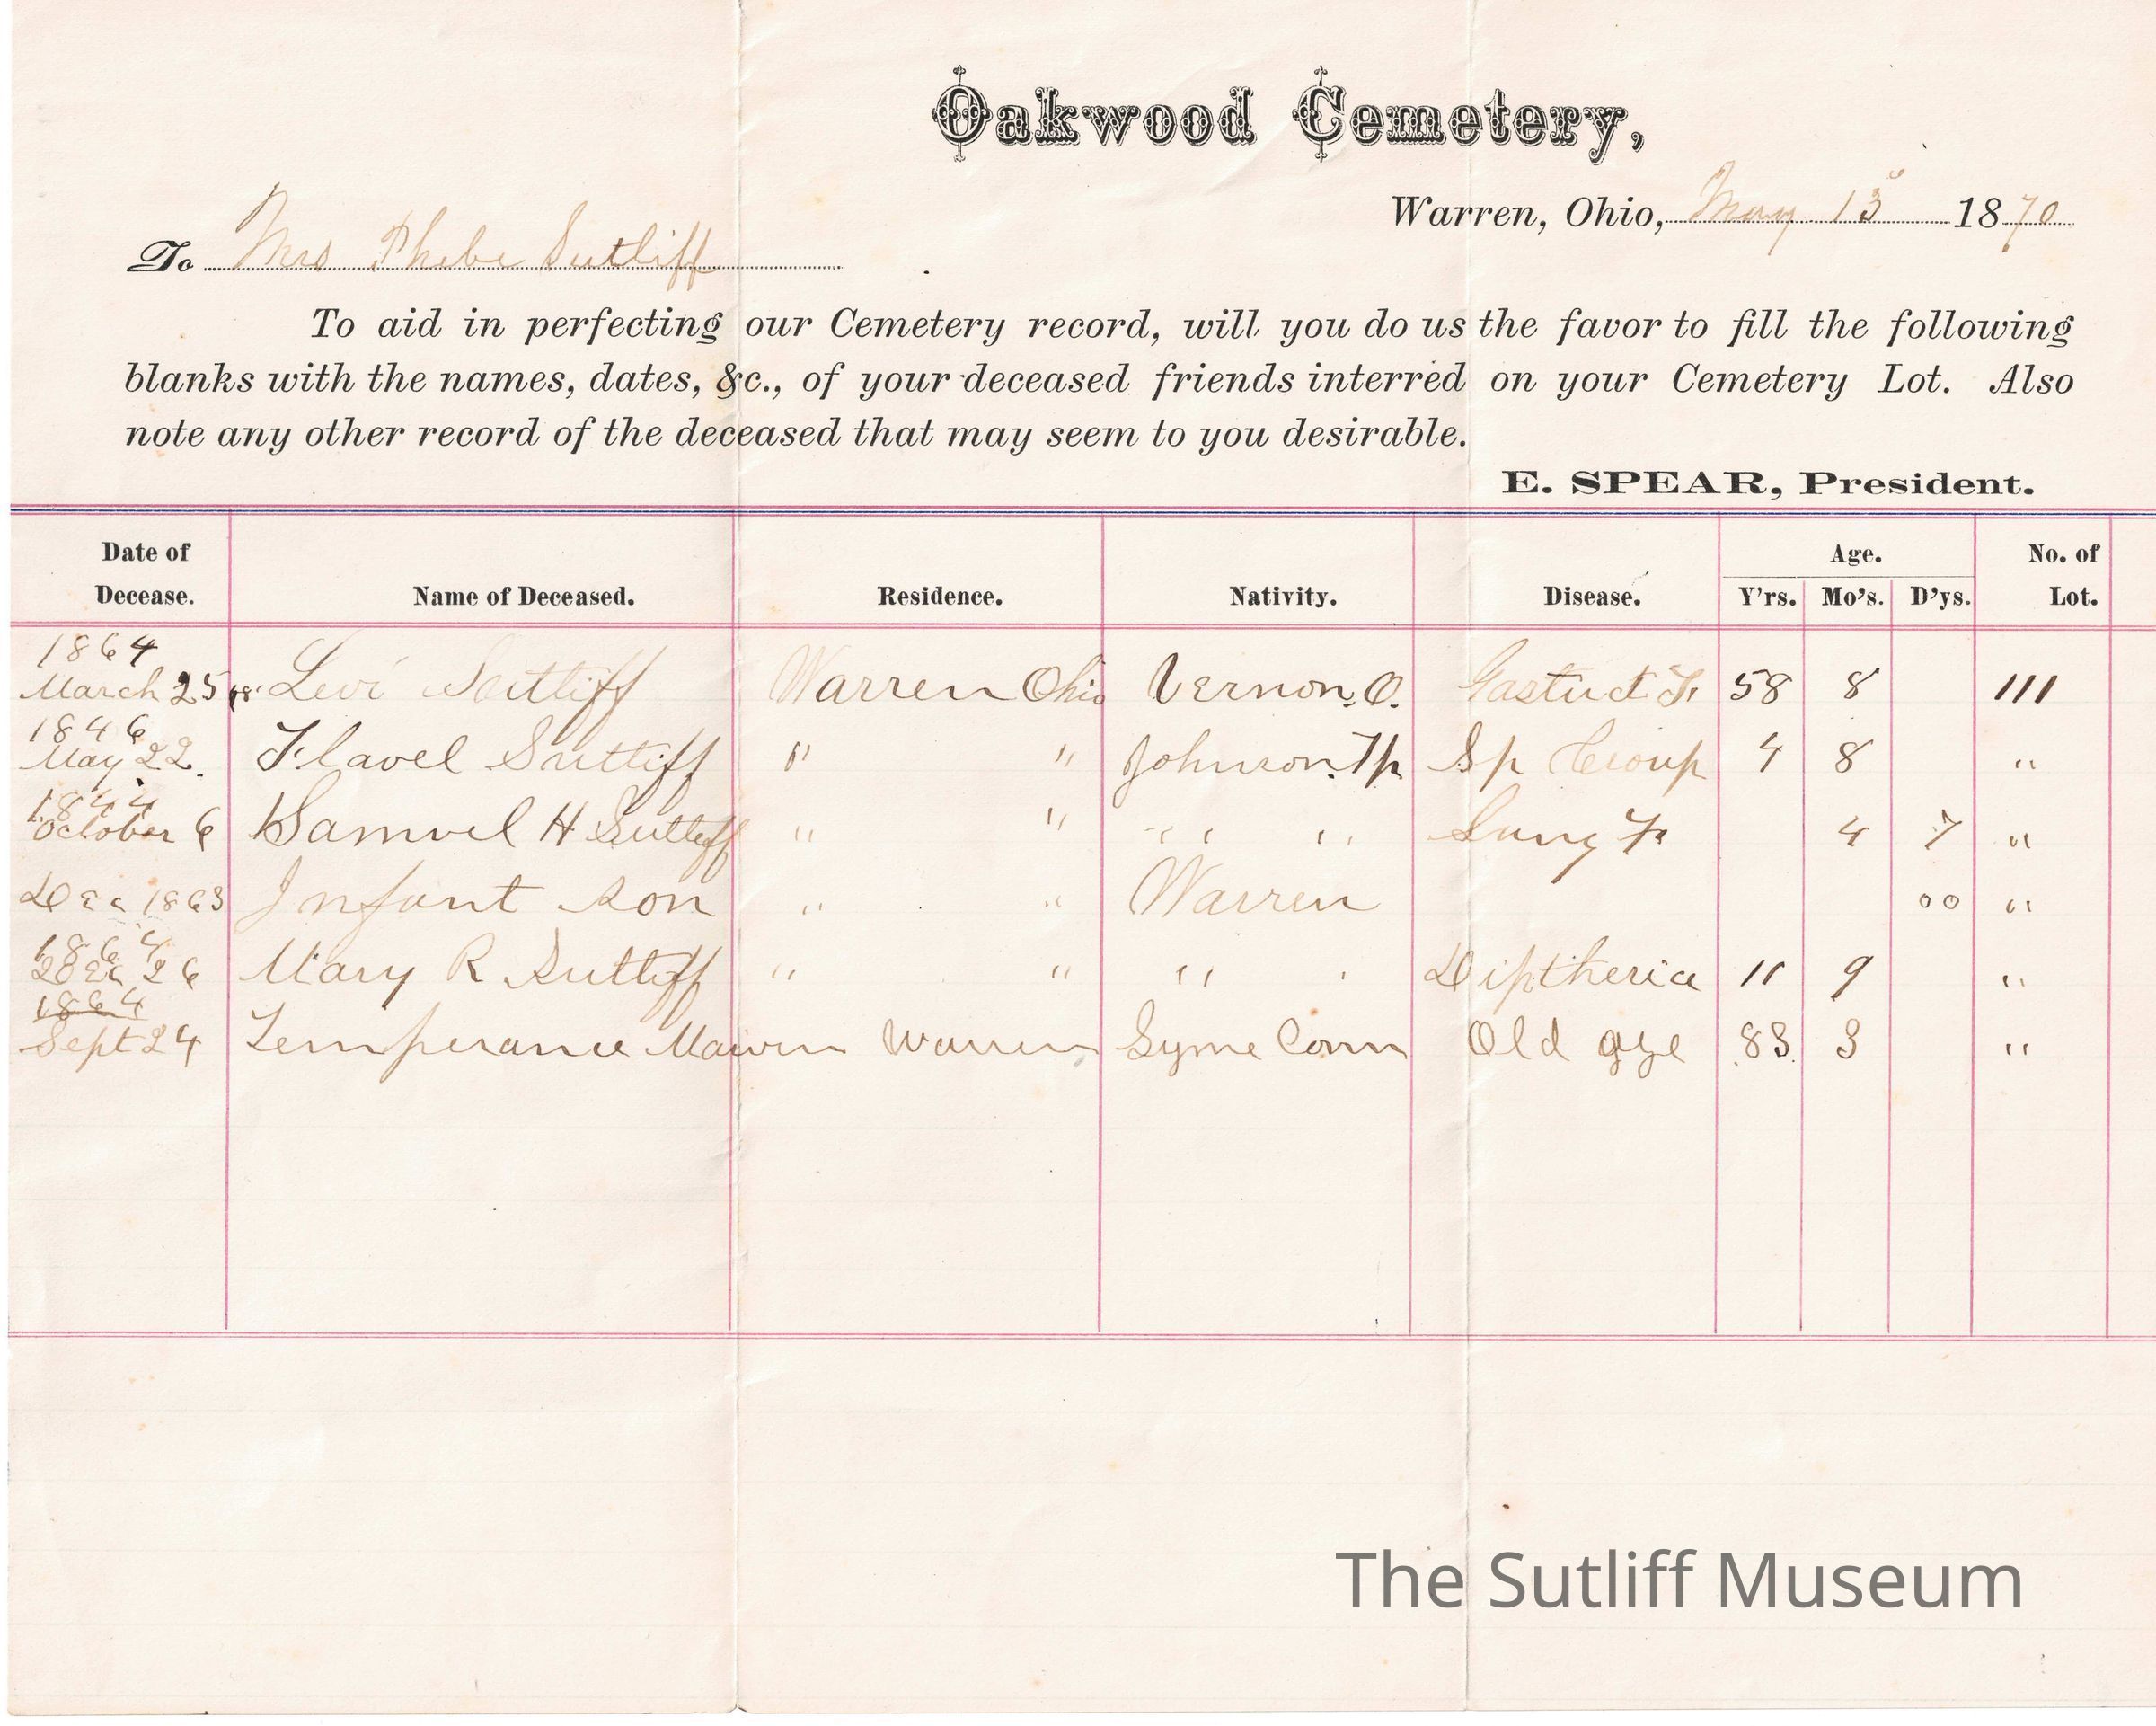 Oakwood Cemetery,
Warren, Ohio, May 13 1870
To Mrs Phebe Sutliff
To aid in perfecting our Cemetery record, will you do us the favor to fill the following
blanks with the names, dates, &c., of your deceased friends interred on your Cemetery Lot. Also
note any other record of the deceased that may seem to you desirable.
E. SPEAR, President.
Date of Decease. Name of Deceased. Residence. Nativity. Disease. Age. Y'rs. Mo's. D'ys. No. of Lot.
1864
March 25 Levi Sutliff Warren Ohio Vernon, O. 58 8 111
1846
May 22. Flavel Sutliff " " Johnson Tp Sp Croup 4 8 "
1844
October 6 Samuel H Sutliff " " " " Lung F. 4 7 "
Dec 1863 Infant son " " Warren 00 "
1864
Dec 26 Mary R Sutliff " " " ' Diptheria 11 9 "
1864
Sept 24 Temperance Marvin Warren Lyme Conn Old age 83 3 "
The Sutliff Museum